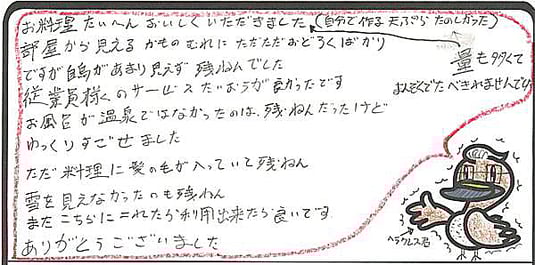 お料理 たいへん おいしく いただきました (自分で作る 天ぷら たのしかった)
部屋から見える かものむれに ただただおどろくばかり
ですが白鳥があまり見えず 残ねんでした
従業員様くのサービスたいおうが良かったです
お風呂が温泉ではなかったのは、残ねんだったけど
ゆっくりすごせました
ただ料理に髪の毛が入っていて残ねん
雪を見えなかったのも残ねん
またこちらにこれたら利用出来たら良いです
ありがとうございました
量も多くて
たべきれませんでした
ヘラクレス君